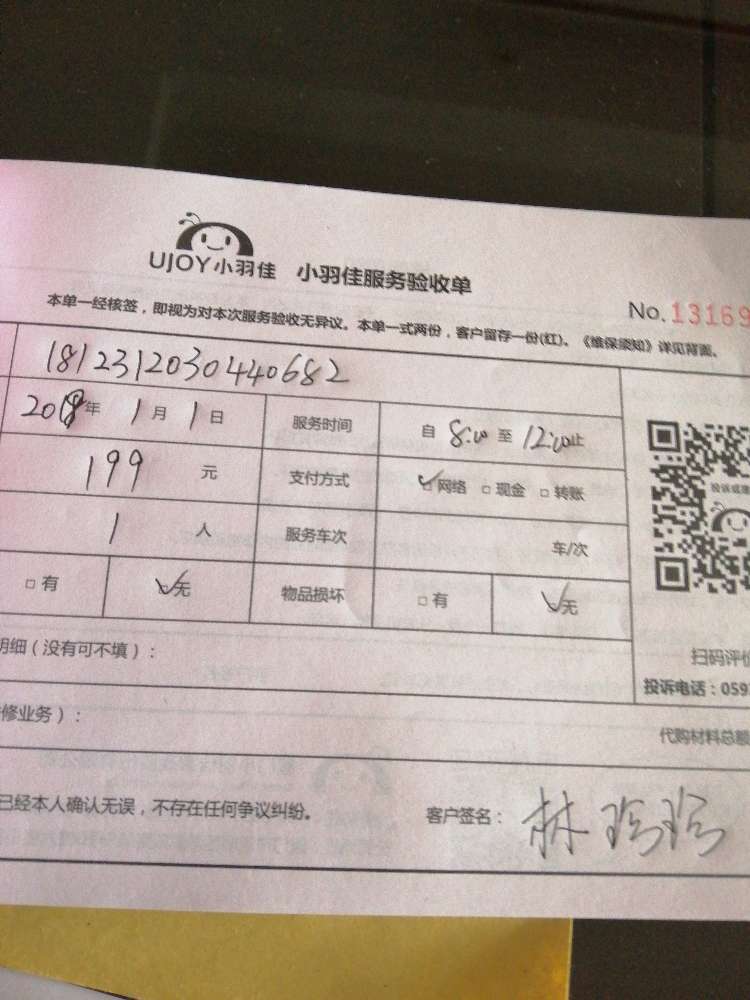 UJOY小羽佳 小羽佳服务验收单
No.13169
本单一经核签，即视为对本次服务验收无异议。本单一式两份，客户留存一份(红)。《维保须知》详见背面。
1812312030440682
2019年 1月 1日 服务时间 自 8:00 至 12:00止
199 元 支付方式 网络 现金 转账
1 人 服务车次 车/次
有 无 物品损坏 有 无
明细（没有可不填）：
扫码评价
投诉电话：059
修业务）：
代购材料总额
已经本人确认无误，不存在任何争议纠纷。 客户签名：林珍珍